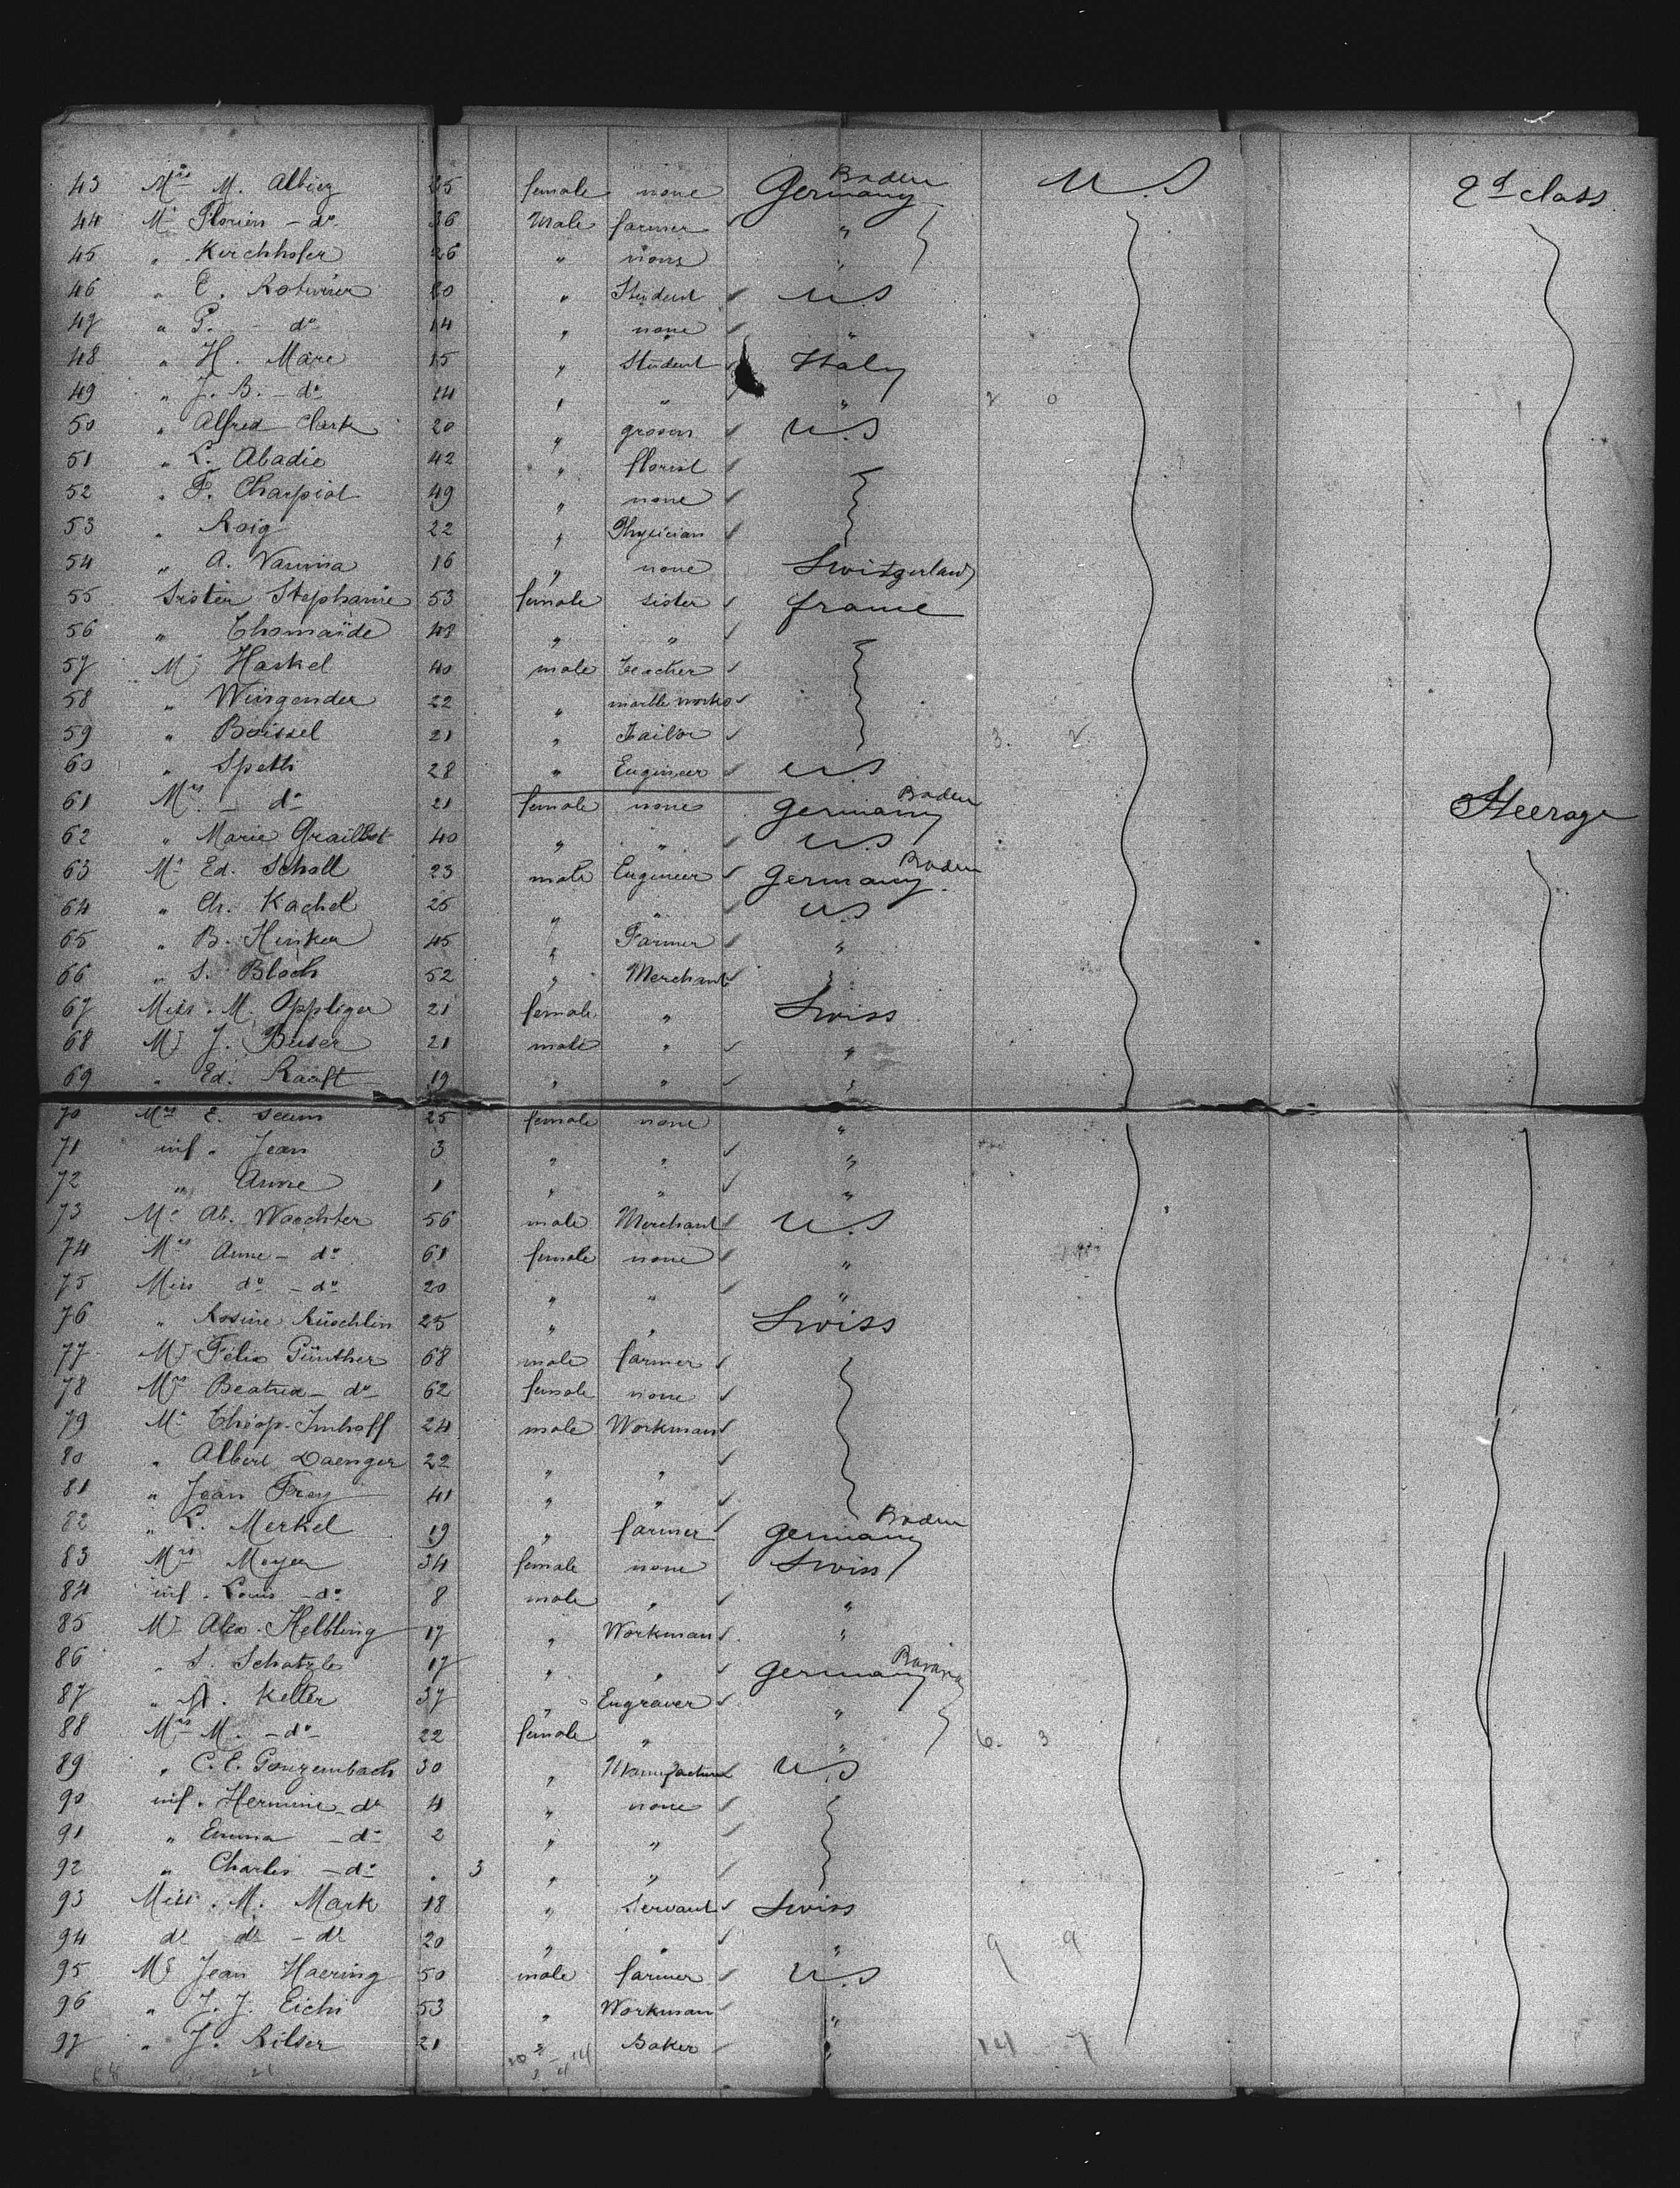 43 Mrs M. Albiez 25 female none Germany Baden U S 2d class
44 Mr Florien - do 36 Male farmer "
45 " Kirchhofer 26 " none "
46 " E. 20 " Student U.S
47 " P. - do 14 " none "
48 " H. Mare 15 " Student Italy
49 " J. B. - do 14 " " " 2 0
50 " Alfred Clark 20 " groom U.S
51 " L. Abadie 42 " florist
52 " F. Charpiot 49 " none
53 " Roig 22 " Physician
54 " A. Vanina 16 " none Switzerland
55 Sister Stephanie 53 female sister france
56 " Thomaïde 48 " "
57 Mr Haskel 40 male teacher
58 " Wingender 22 " marble works
59 " Boissel 21 " Tailor 3. 2
60 " Spetti 28 " Engineer U.S
61 Mrs - do 21 female none Germany Baden Steerage
62 " Marie Graillot 40 " " U.S
63 Mr Ed. Scholl 23 male Engineer Germany Baden
64 " Ch. Kachel 25 " " U.S
65 " B. Hinker 45 " Farmer "
66 " S. Bloch 52 " Merchant "
67 Miss. M. Oppliger 21 female " Swiss
68 Mr J. Buser 21 male " "
69 " Ed. Raaft 19 " " "
70 Mrs E. 25 female none "
71 inf " Jean 3 " " "
72 " " Anne 1 " " "
73 Mr Ab. Waechter 56 male Merchant U.S
74 Mrs Anne - do 61 female none "
75 Miss do - do 20 " " "
76 " Rosine Rüschlin 25 " " Swiss
77 Mr Félix Günther 68 male farmer
78 Mrs Beatrix - do 62 female none
79 Mr Théop. Imhoff 24 male Workman
80 " Albert Daenger 22 " "
81 " Jean Frey 41 " "
82 " L. Merkel 19 " farmer Germany Baden
83 Mrs Meyer 34 female none Swiss
84 inf. Louis - do 8 male " "
85 Mr Alex. Helbling 17 " Workman "
86 " S. Schatzle 17 " " Germany Bavaria
87 " A. Keller 37 " Engraver "
88 Mrs M. - do 22 female " " 6. 3
89 " C. E. Gonzenbach 30 " Manufacturer U.S
90 inf. Hermine - do 4 " none
91 " Emma - do 2 " "
92 " Charles - do . 3 " "
93 Miss. M. Mark 18 " Servant Swiss
94 do do - do 20 " " " 9 9
95 Mr Jean Haering 50 male farmer U.S
96 " J. J. Eichi 53 " Workman "
97 " J. Rilser 21 " Baker " 14 7